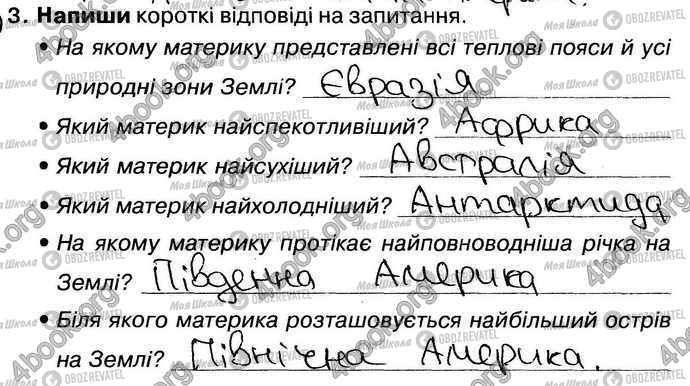 3. Напиши короткі відповіді на запитання.
• На якому материку представлені всі теплові пояси й усі
природні зони Землі? Євразія
• Який материк найспекотливіший? Африка
• Який материк найсухіший? Австралія
• Який материк найхолодніший? Антарктида
• На якому материку протікає найповноводніша річка на
Землі? Південна Америка
• Біля якого материка розташовується найбільший острів
на Землі? Північна Америка.